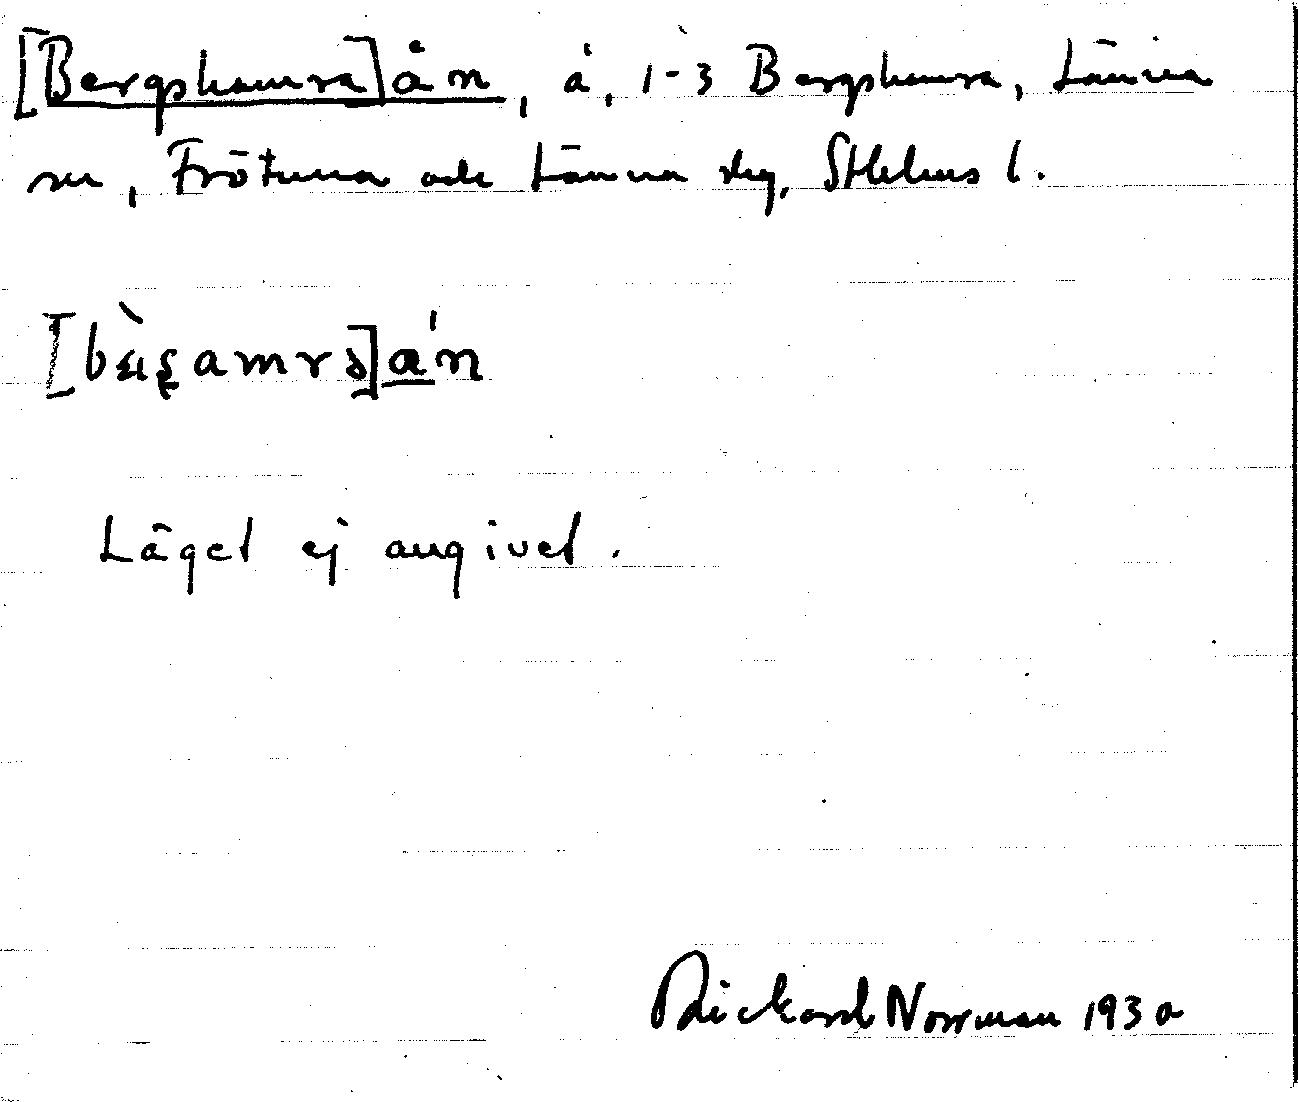 [Bergshamra]ån, å, 1-3 Bergshamra, Länna
sn, Frötuna och Länna skg, Sthlms l.
[bæ̀ʂamrə]a´n
Läget ej angivet.
Rickard Norrman 1930